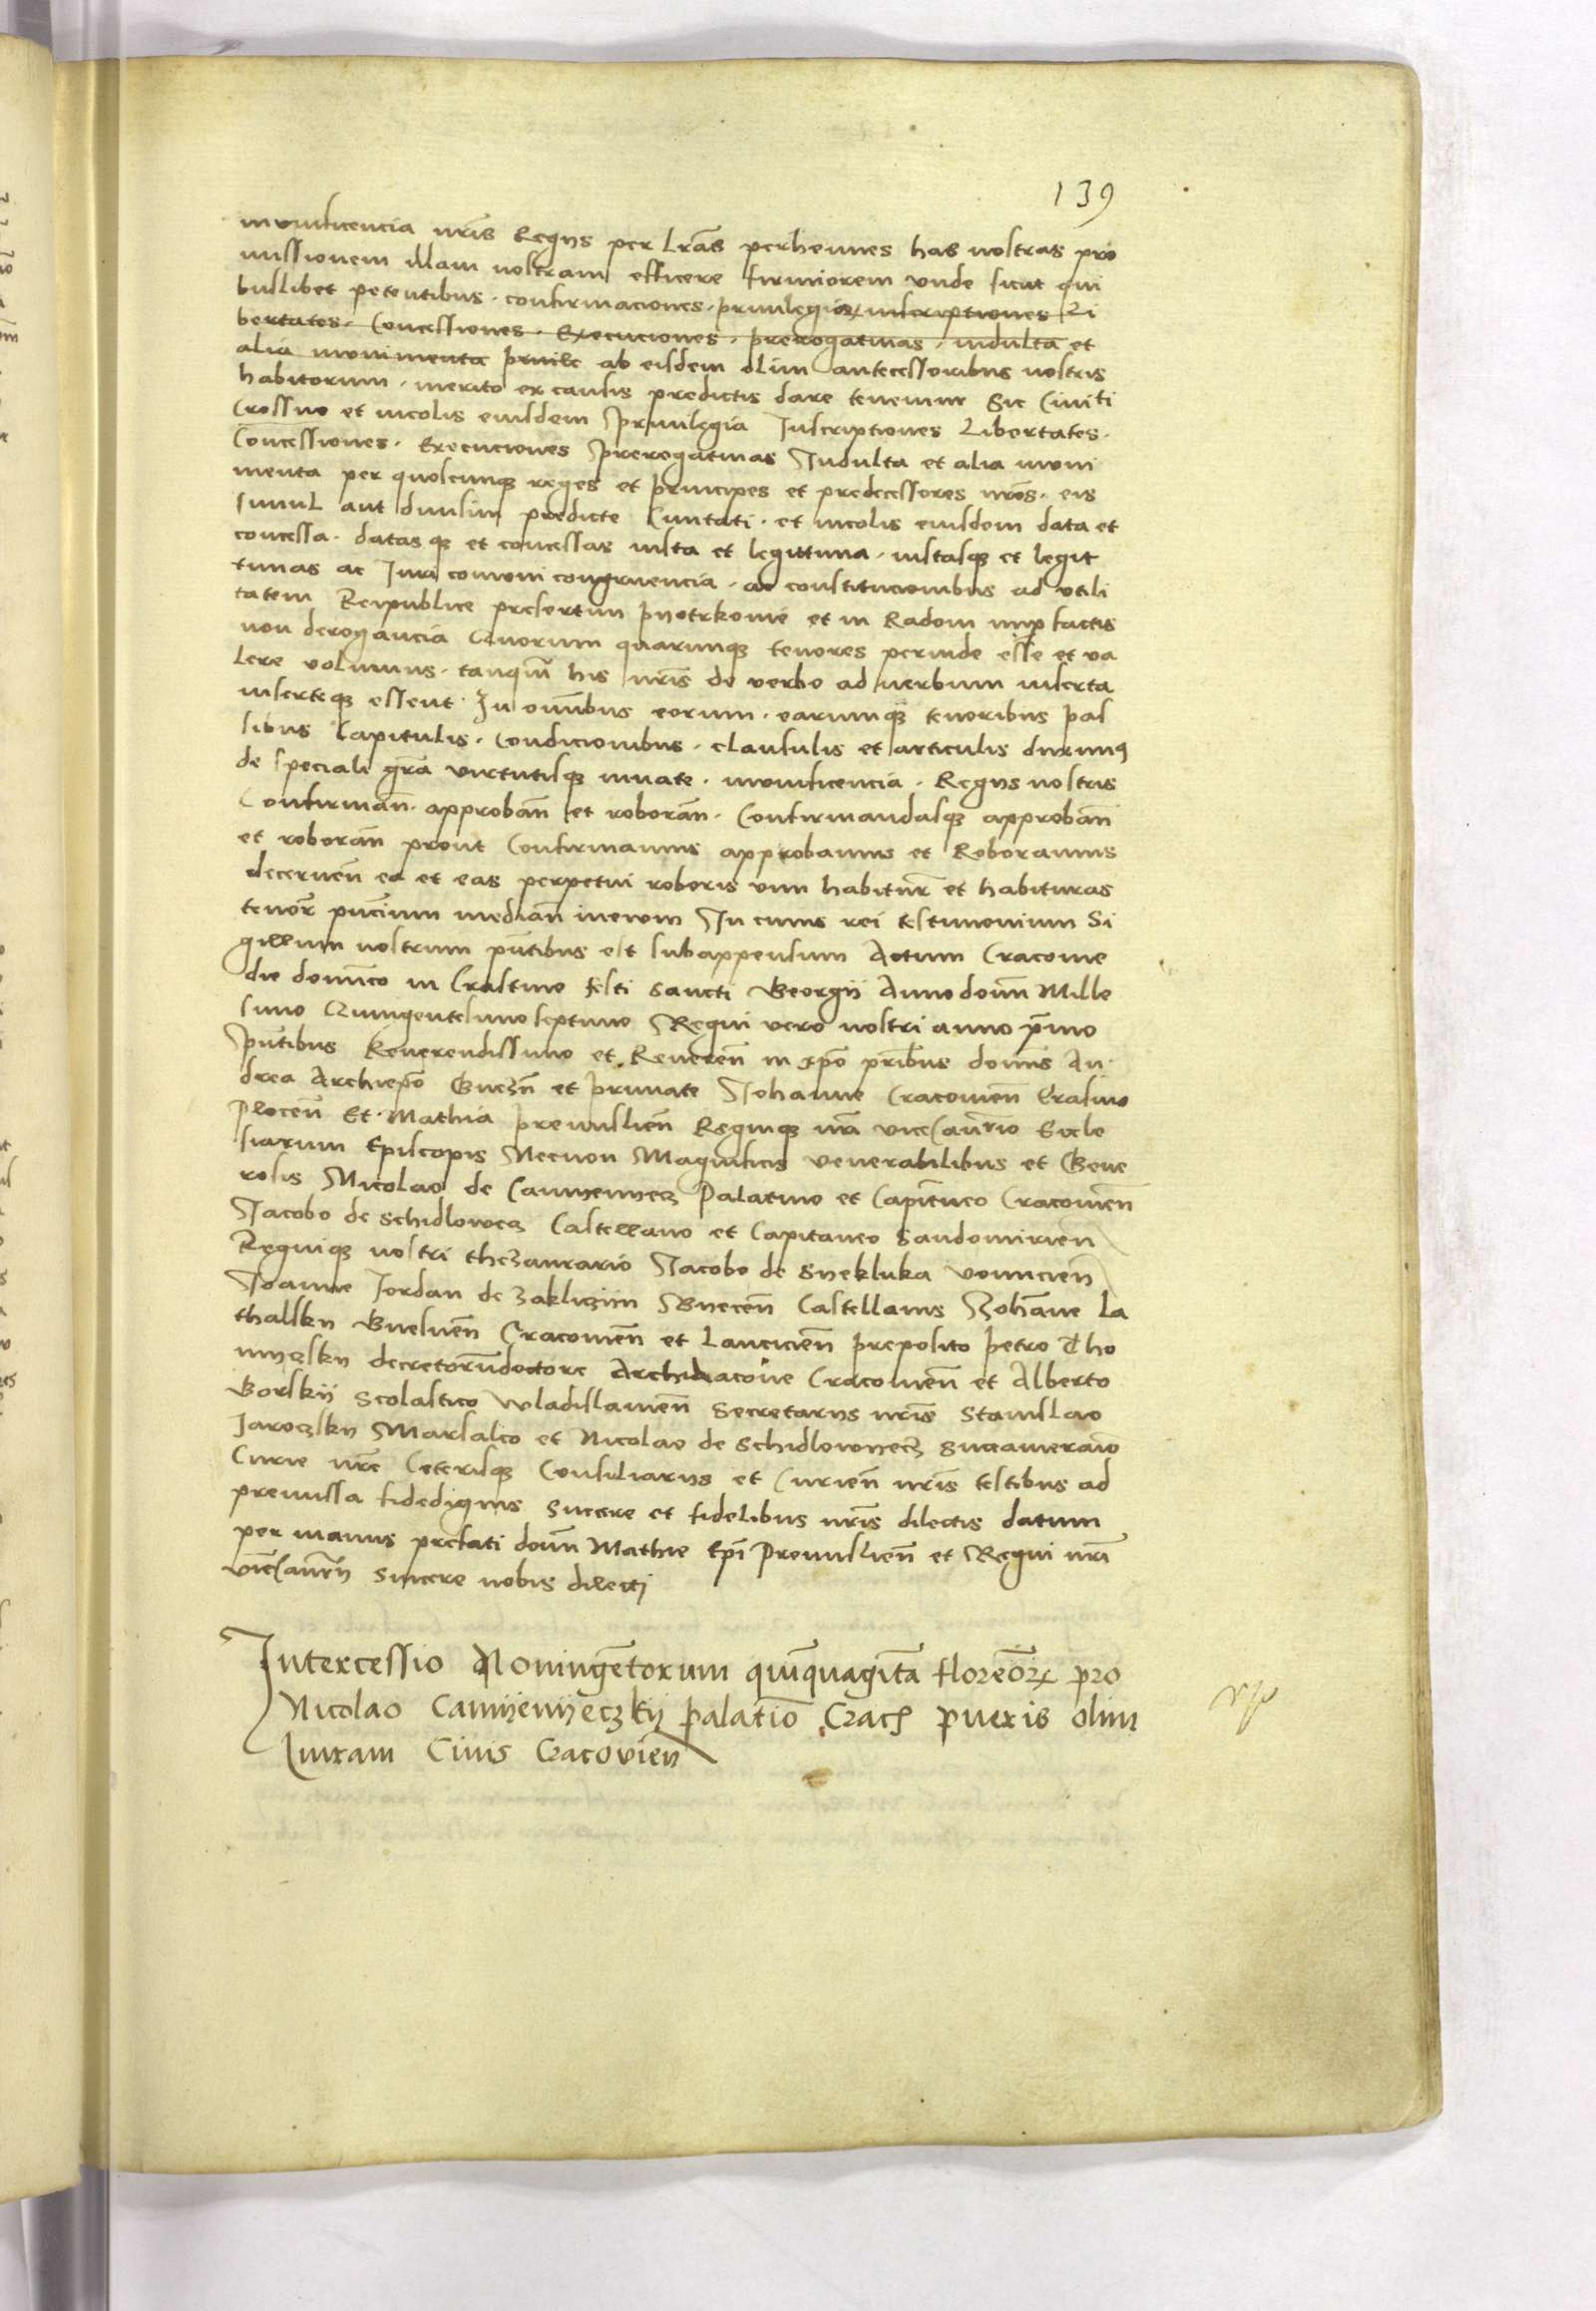 139
munificencia nr̃is Regijs per lr̃as perhennes has nostras pro
missionem illam nostram efficere firmiorem vnde sicut qui
buslibet petentibus . confirmaciones . priuilegioꝝ inscriptiones Li
bertates . Concessiones . Execuciones . prerogatiuas . indulta et
alia monimenta ab eisdem olim antecessoribus nostris
habitorum . merito ex causis predictis dare tenemur Sic Ciuiti
Crossno et incolis eiusdem Priuilegia Inscriptiones Libertates .
Concessiones . Execuciones Prerogatiuas Indulta et alia moni
menta per quoscunqꝫ reges et principes et predecessores nr̃os . eis
simul aut diuisim predicte Ciuitati . et incolis eiusdem data et
concessa . datas qꝫ et concessas iusta et legittima . iustasqꝫ et legit
timas ac Juri comoni congruencia . ac constitucionibus ad vtili
tatem Reipublice presertim Pyotrkouie et in Radom nup factis
non derogancia Quorum quarumqꝫ tenores perinde esse et va
lere volumus . tanqum̃ his nr̃is de verbo ad uerbum inserta
inserteqꝫ essent . In omnibus eorum . earumqꝫ tenoribus pas
sibus Capitulis . Condicionibus . clausulis et articulis duximꝯ
de speciali gr̃a virtutisqꝫ innate . munificencia . Regijs nostris
Confirman̄ . approban̄ et roboran̄ . Confirmandasqꝫ approban̄
et roboran̄ prout Confirmamus approbamus et Roboramus
decernen̄ ea et eas perpetui roboris vim habitur̃ et habituras
tenor̃ pn̄cium median̄ In cuius rei testimonium Si
gillum nostrum pn̄tibus est subappensum Actum Cracouie
die domĩco in Crastino festi sancti Georgij Anno domĩ Mille
simo Quingentesimo septimo Regni vero nostri anno p̃mo
Pn̄tibus Reuerendissimo et Reueren̄ in xp̃o prĩbus domĩs An
drea Archiep̃o Gnezn̄ et primate Johanne Cracouien̄ Erasmo
Plocen̄ Et Mathia premislien̄ Regniqꝫ nr̃i viceCancr̃io Eccle
siarum Episcopis Necnon Magnificis venerabilibus et Gene
rosis Nicolao de Camyenyecz Palatino et Capitneo Cracouien̄
Jacobo de Schidlowecz Castellano et Capitaneo Sandomirien̄
Regniqꝫ nostri thezaurario Jacobo de Syekluka voinicien̄
Joanne Jordan de Zakliczin Byecen̄ Castellanis Johanne La
thalsky Gnesnen̄ Cracouien̄ et Lancicien̄ preposito Petro Tho
myczsky decretorũ doctore Archidiacone Cracouien̄ et Alberto
Gorskij Scolastico Wladislauien̄ Secretarijs nr̃is Stanislao
Jaroczsky Marsalco et Nicolao de Schidlowyecz Succameraĩo
Curie nr̃e Ceterisqꝫ Consiliarijs et Curien̄ nr̃is testibus ad
premissa fidedignis Sincere et fidelibus nr̃is dilectis datum
per manus prefati domĩ Mathie Ep̃i Premislien̄ et Regni nr̃i
viceCancr̃ij sincere nobis dilecti
Intercessio Noningẽtorum quĩquagĩta florẽoꝝ pro
Nicolao Camijenijeczkij palatĩo Crac pueris olim
Ciuis Cracouien̄